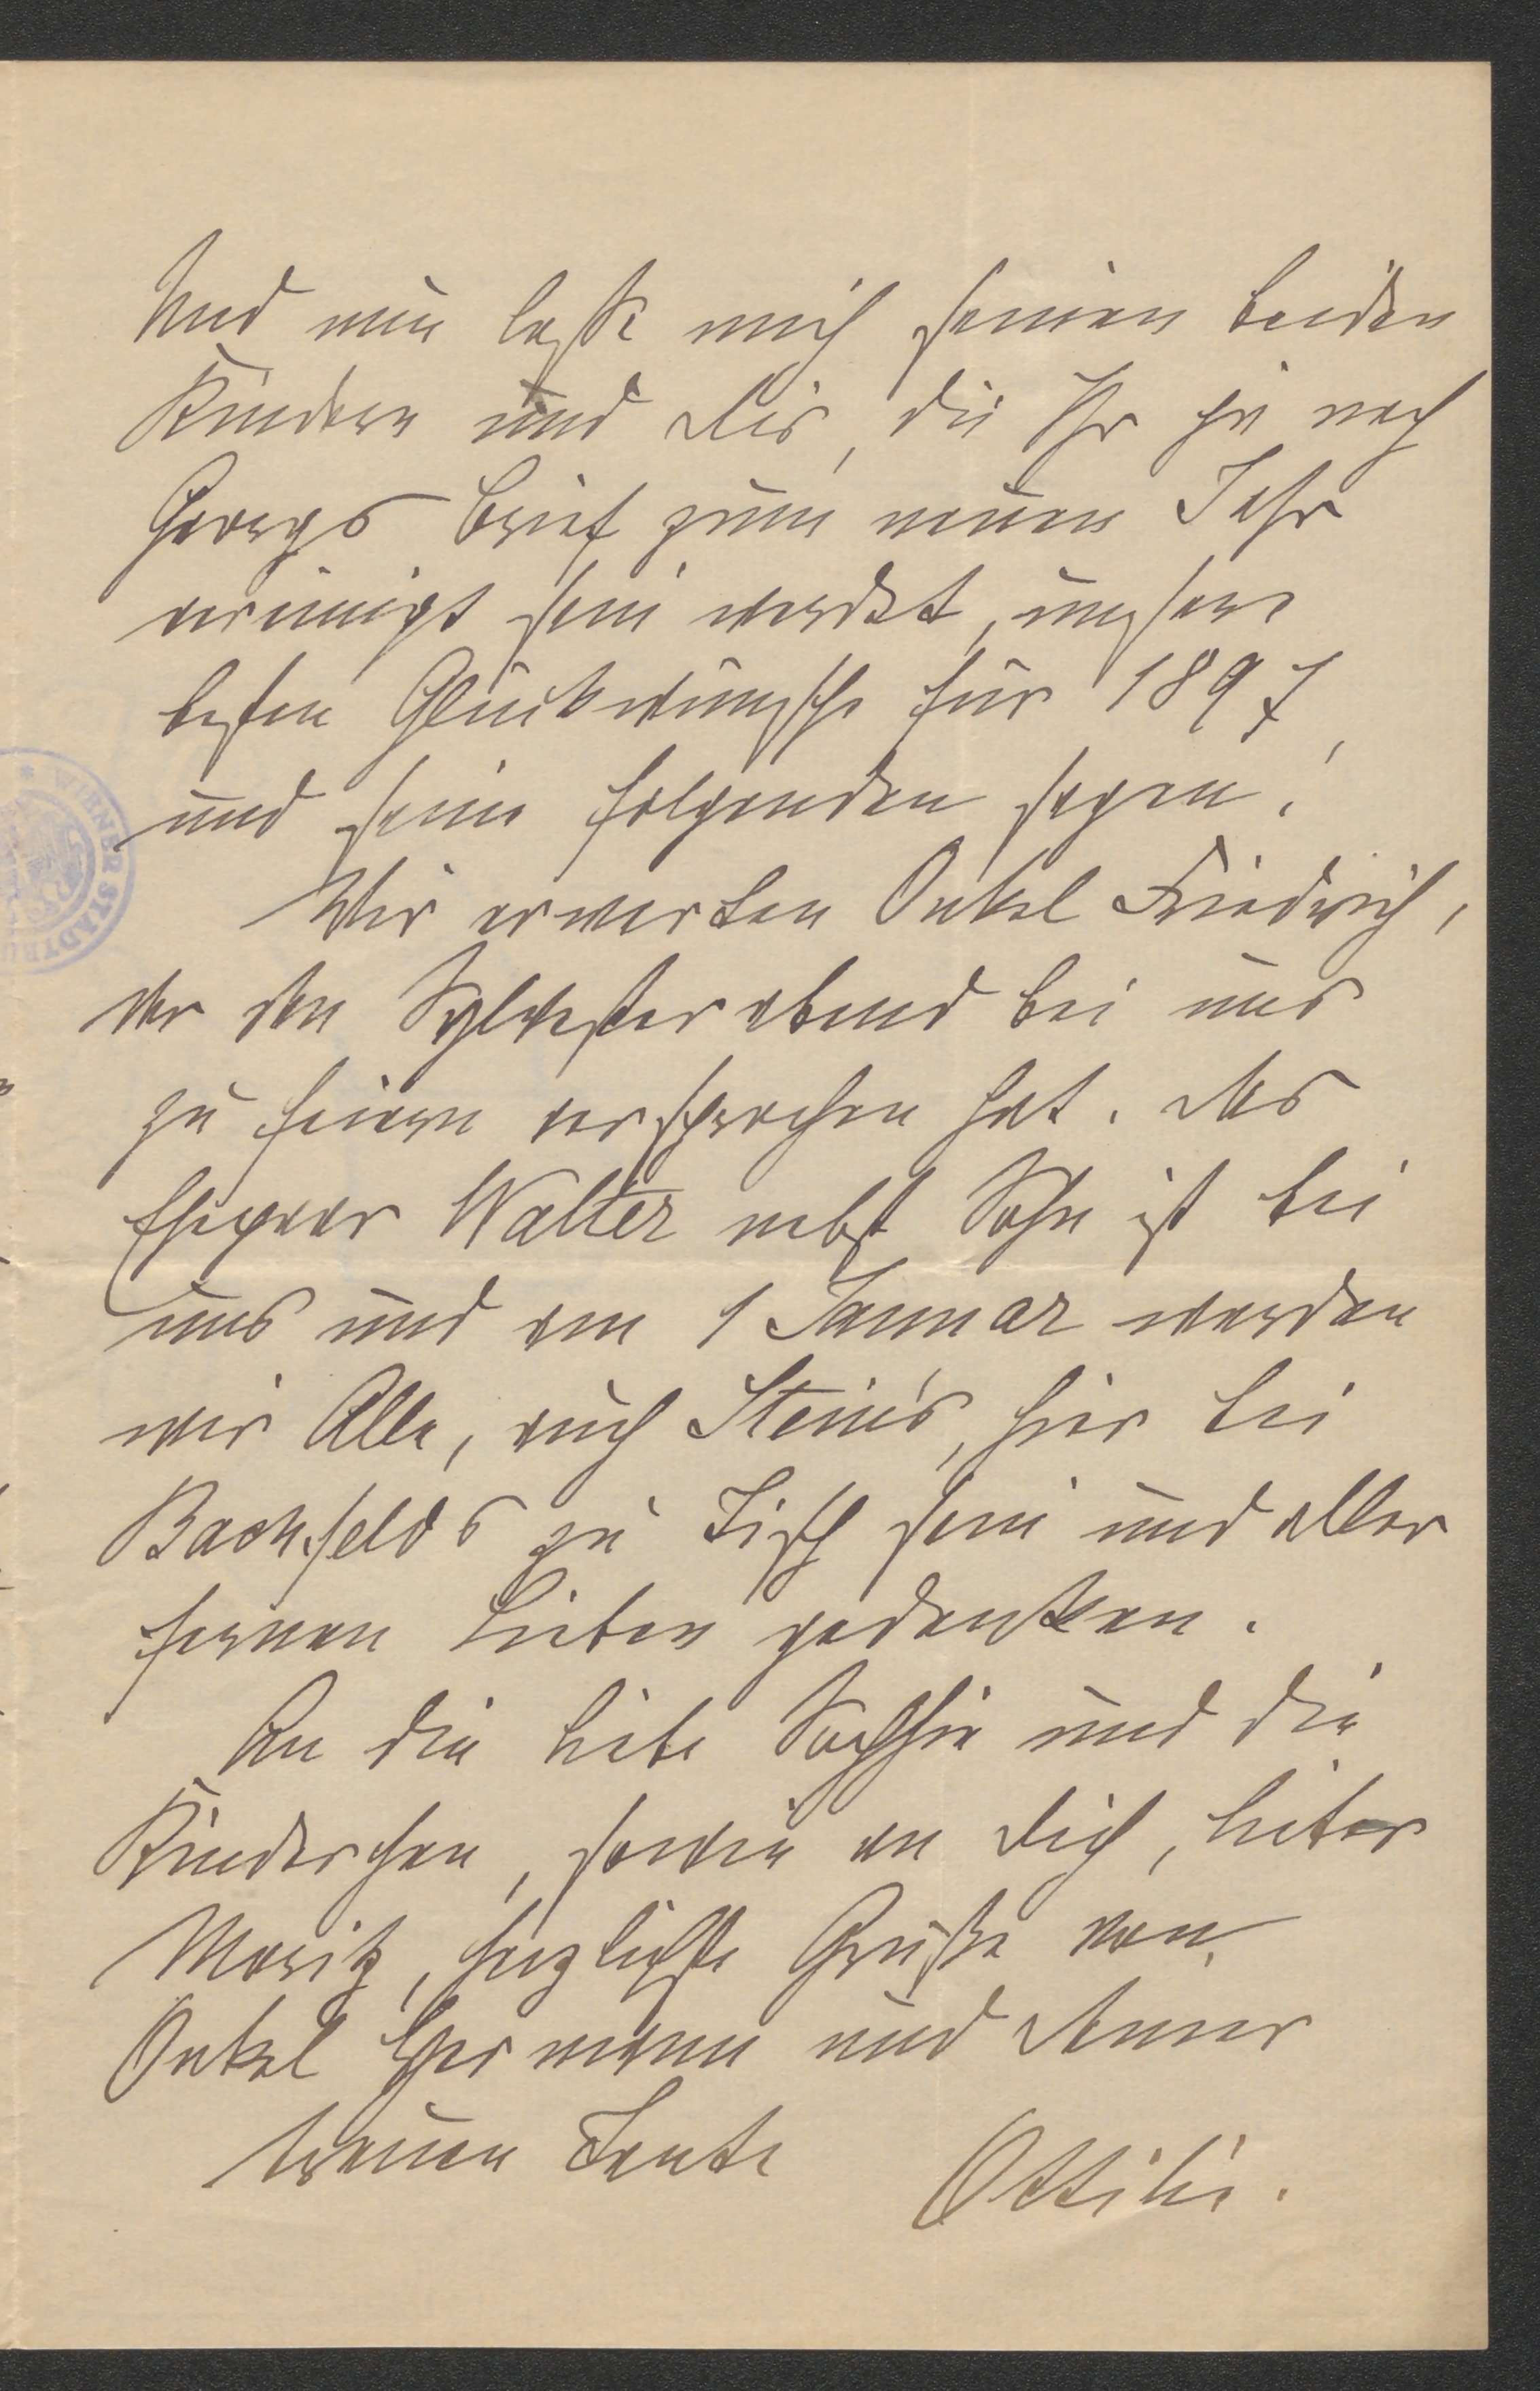 Und nun laßt mich seinen beiden
Kindern und Dir, die Ihr ja nach
Georgs Brief zum neuen Jahr
vereinigt sein werdet, unsere
besten Glückwünsche für 1897
und seine folgenden sagen!
Wir erwarten Onkel Friedrich,
der den Sylvesterabend bei uns
zu feiern versprochen hat. Das
Ehepaar Walter nebst Sohn ist bei
uns und am 1 Januar werden
wir Alle, auch Stein's, hier bei
Bachfelds zu Tisch sein und aller
fernen Lieben gedenken.
An die liebe Sophie und die
Kinderchen, sowie an Dich, lieber
Moritz, herzlichste Grüße von
Onkel Hermann und Deiner
treuen Tante Ottilie.
WIENER STADT